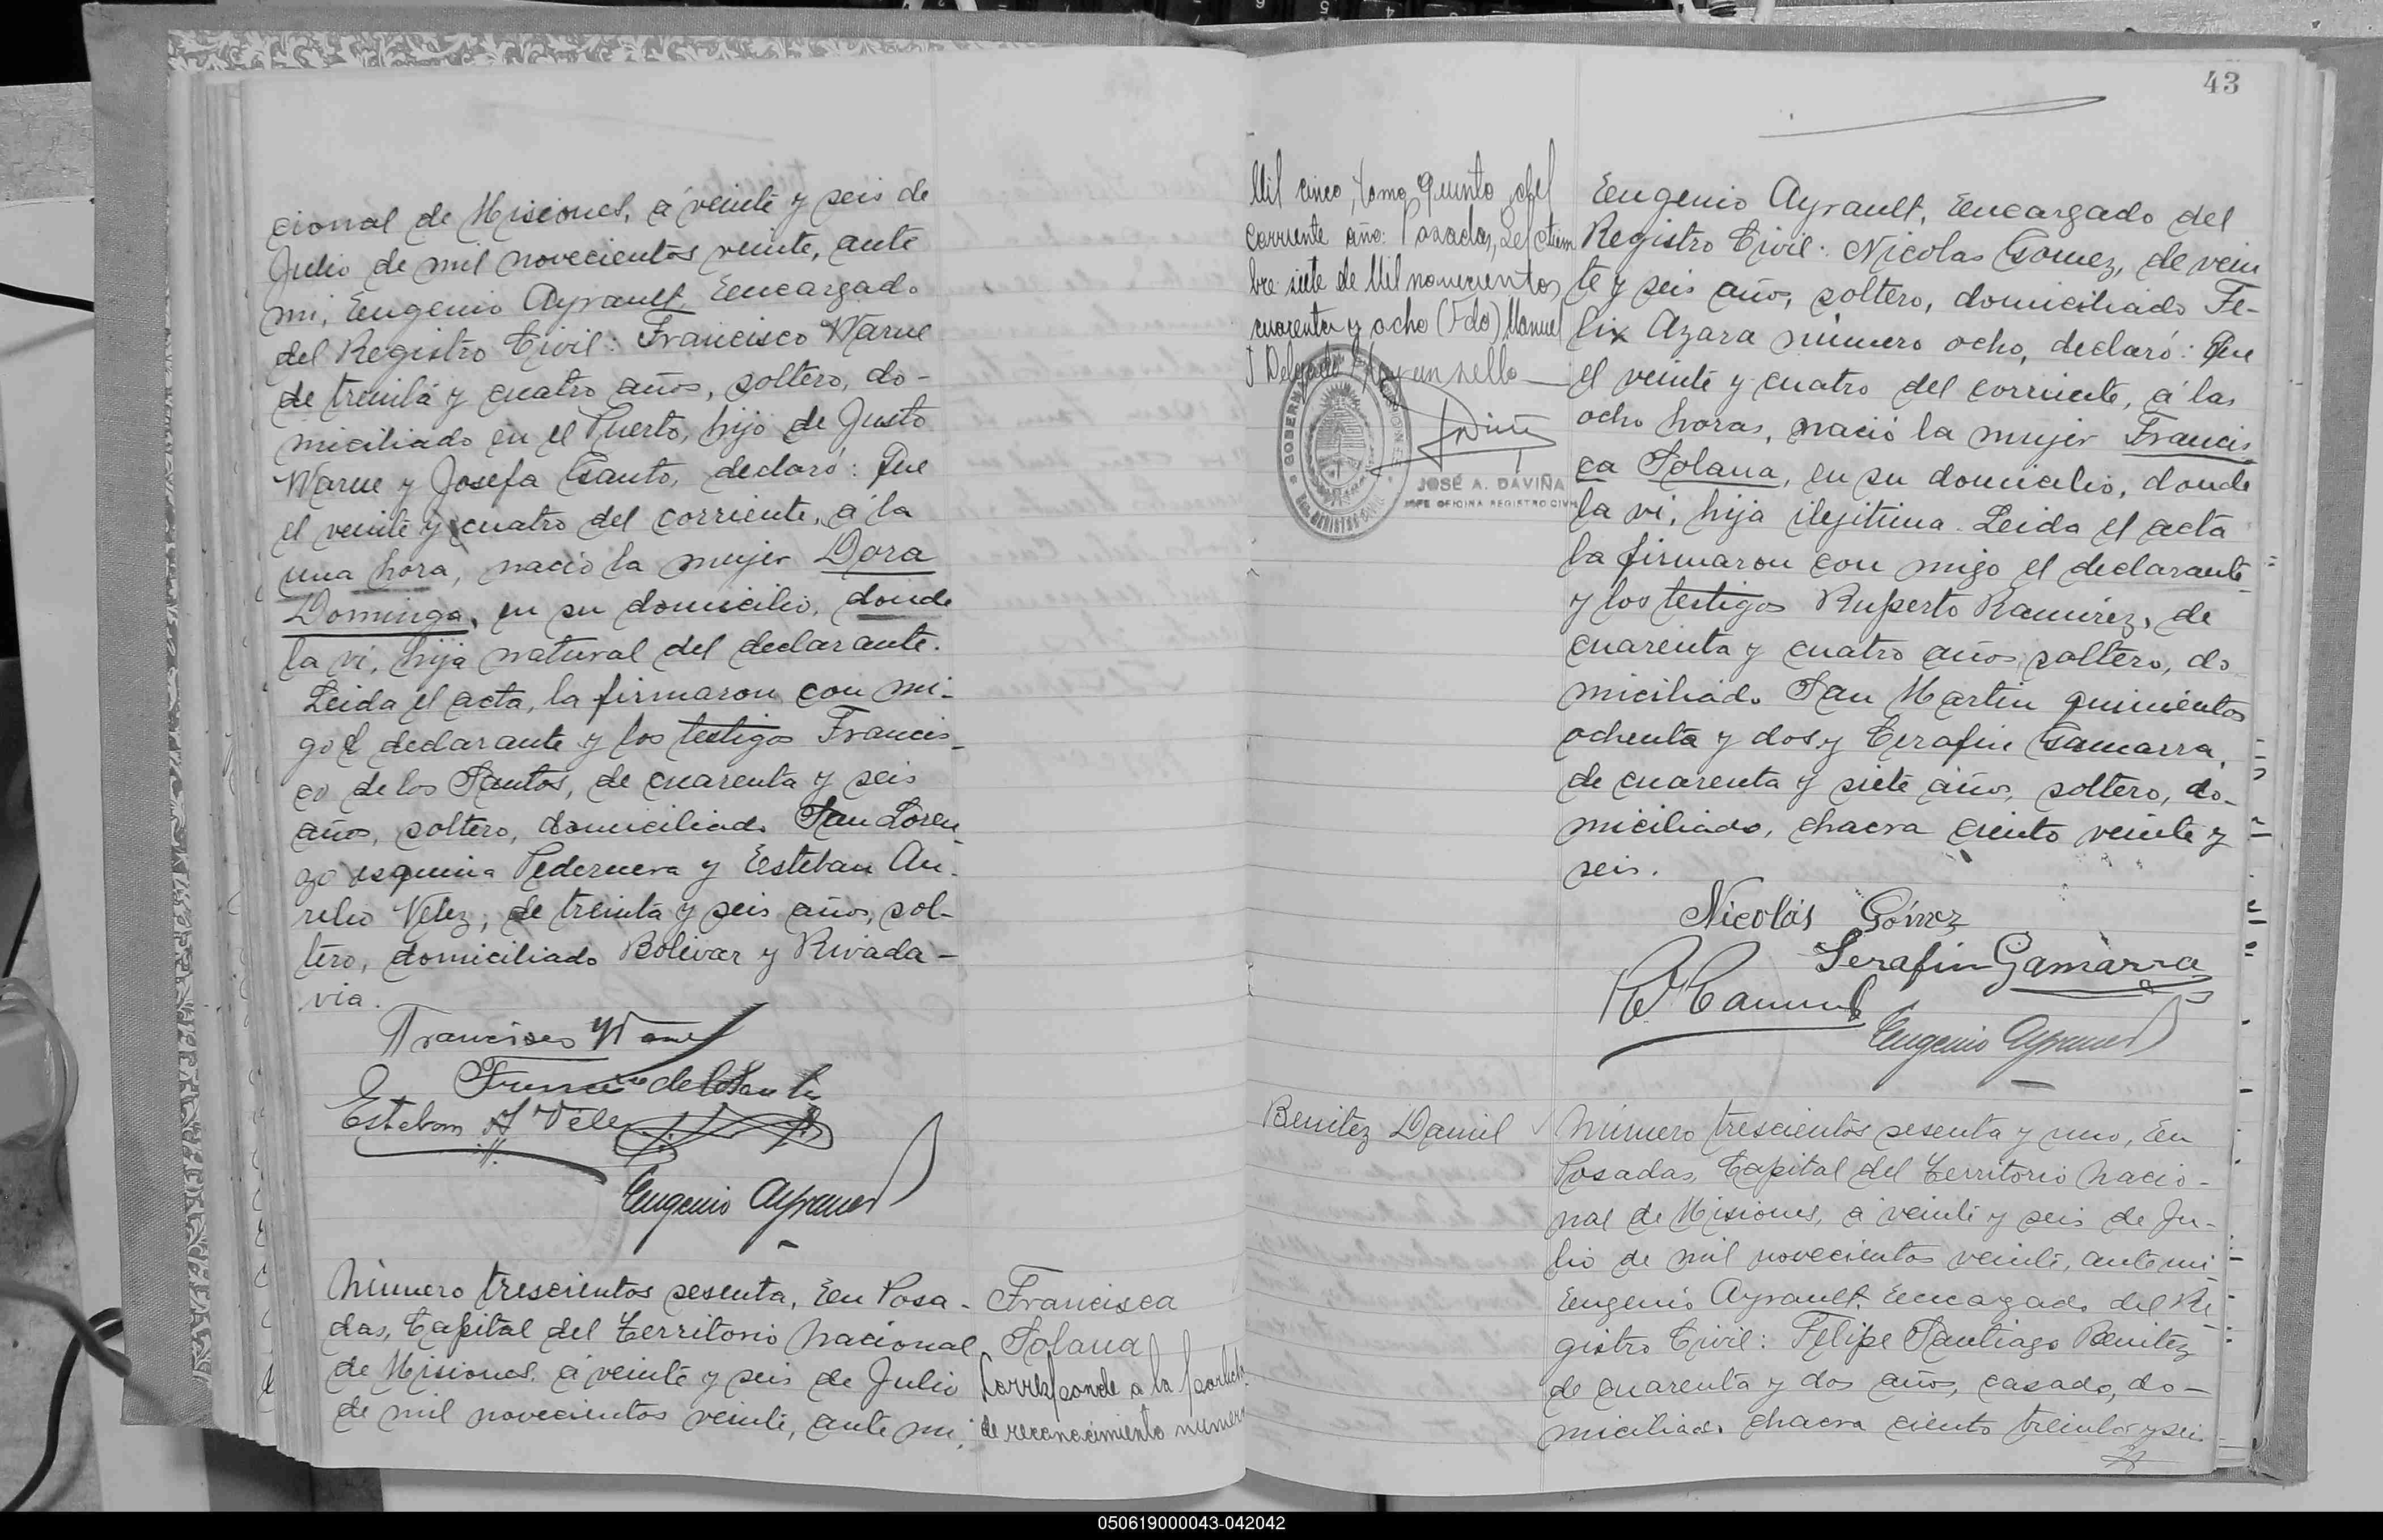 cional de Misiones, á veinte y seis de
Julio de mil novecientos veinte, ante
mi, Eugenio Ayrault, Encargado
del Registro Civil: Francisco Warne
de treinta y cuatro años, soltero, do-
miciliado en el Puerto, hijo de Justo
Warne y Josefa Canto, declaró: Que
el veinte y cuatro del corriente, á la
una hora, nació la mujer Dora
Dominga, en su domicilio, donde
la vi, hija natural del declarante.
Leida el acta, la firmaron con mi-
go el declarante y los testigos Francis-
co de los Santos, de cuarenta y seis
años, soltero, domiciliado San Loren
zo esquina Pedernera y Esteban Au-
relio Velez, de treinta y seis años, sol-
tero, domiciliado Bolivar y Rivada-
via.
Francisco Warne
Francisco de los Santos
Esteban A Velez
Eugenio Ayrault
Número trescientos sesenta, En Posa-
das, Capital del Territorio Nacional
de Misiones, á veinte y seis de Julio
de mil novecientos veinte, ante mi,
Francisca
Solana
Corresponde a la
de reconocimiento numero
43
Mil cinco, tomo quinto del
corriente año: Posadas, Setiem
bre siete de Mil novecientos
cuarenta y ocho (Fdo) Manuel
J Delgado Hay un sello
GOBERN MISIONES
REGISTRO CIVIL
JOSÉ A. DAVIÑA
JEFE OFICINA REGISTRO CIVIL
Eugenio Ayrault, Encargado del
Registro Civil: Nicolas Gomez, de vein
te y seis años, soltero, domiciliado Fe-
lix Azara número ocho, declaró: Que
el veinte y cuatro del corriente, á las
ocho horas, nació la mujer Francis
ca Solana, en su domicilio, donde
la vi, hija ilegitima. Leida el acta
la firmaron con migo el declarante
y los testigos Ruperto Ramirez, de
cuarenta y cuatro años, soltero, do
miciliado San Martin quinientos
ochenta y dos y Cerafin Gamarra,
de cuarenta y siete años, soltero, do-
miciliado, chacra ciento veinte y
seis.
Nicolás Gómez
Serafin Gamarra
R Ramirez
Eugenio Ayrault
Benitez Daniel
Número trescientos sesenta y uno, En
Posadas, Capital del Territorio Nacio-
nal de Misiones, á veinte y seis de Ju-
lio de mil novecientos veinte, ante mi
Eugenio Ayrault, Encargado del Re
gistro Civil: Felipe Santiago Benitez
de cuarenta y dos años, casado, do-
miciliado chacra ciento treinta y seis
050619000043-042042